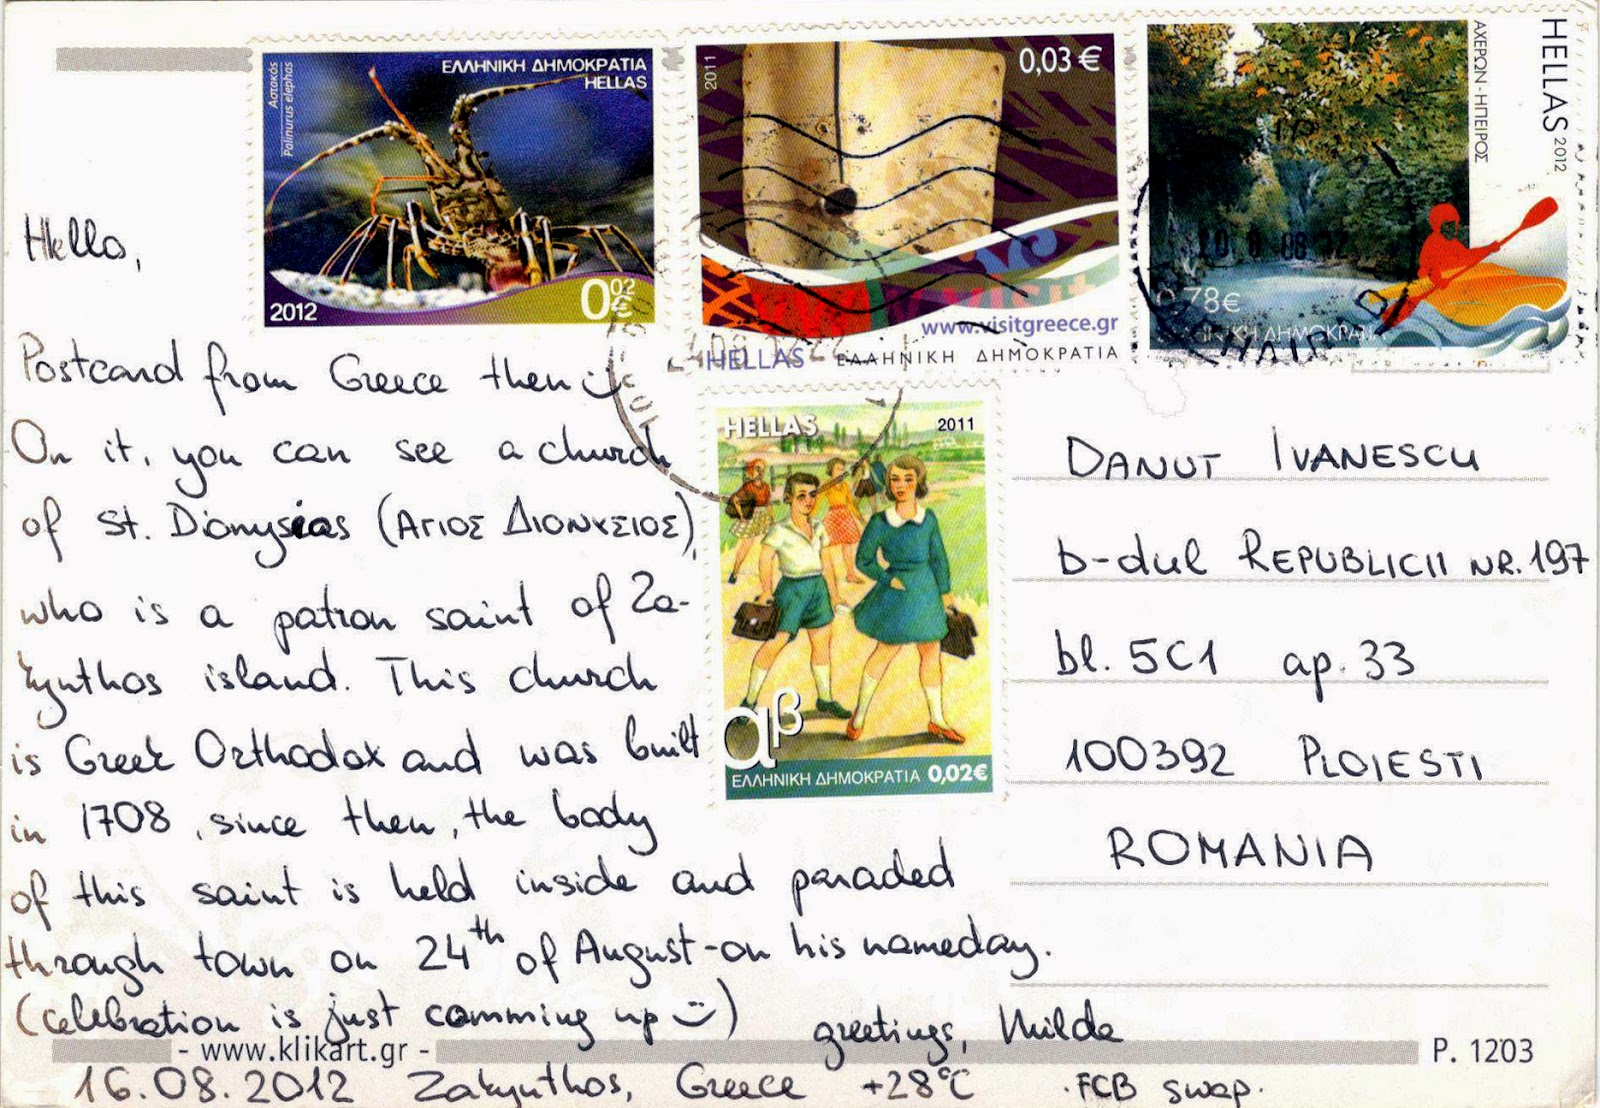 Αστακός
Palinurus elephas
ΕΛΛΗΝΙΚΗ ΔΗΜΟΚΡΑΤΙΑ
HELLAS
2012
0,02 €
2011
0,03 €
visit
www.visitgreece.gr
HELLAS ΕΛΛΗΝΙΚΗ ΔΗΜΟΚΡΑΤΙΑ
HELLAS 2012
ΑΧΕΡΩΝ - ΗΠΕΙΡΟΣ
0,78€
ΕΛΛΗΝΙΚΗ ΔΗΜΟΚΡΑΤΙΑ
HELLAS
2011
αβ
ΕΛΛΗΝΙΚΗ ΔΗΜΟΚΡΑΤΙΑ 0,02€
Hello,
Postcard from Greece then
On it, you can see a church
of St. Dionysias (ΑΓΙΟΣ ΔΙΟΝΥΣΙΟΣ),
who is a patron saint of Za-
kynthos island. This church
is Greek Orthodox and was built
in 1708, since then, the body
of this saint is held inside and paraded
through town on 24th of August - on his nameday.
(celebration is just comming up)
greetings, Milda
16.08.2012 Zakynthos, Greece +28°C ·FCB swap·
DANUT IVANESCU
b-dul REPUBLICII NR. 197
bl. 5C1 ap. 33
100392 PLOIESTI
ROMANIA
- www.klikart.gr -
P. 1203